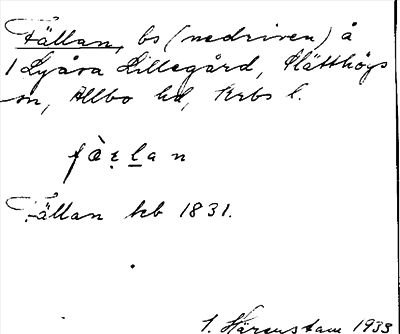 Fällan, bs (nedriven) å
1 Lyåsa Lillegård, Slätthögs
sn, Allbo hd, Krbs l.
Fällan kb 1831.
1933